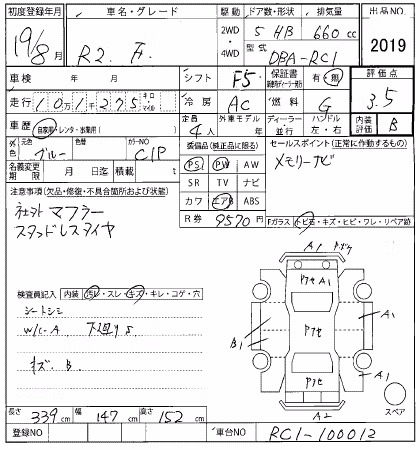 初度登録年月 車名・グレード 駆動 ドア数・形状 排気量 出品NO
19/8月 R2 2WD・4WD 5 HB 660 cc 2019
型式 DBA-RC1
車検 年 月 シフト F5 保証書 有・無 評価点
走行 101275 キロ・マイル 冷房 AC 燃料 G 3.5
車歴 自家用・レンタ・事業用( ) 定員 4人 外車モデル 年 ディーラー・並行 ハンドル 左・右 内装評価 B
外色 元色 ブルー 色替 カラーNO C1P 装備品(純正品に限る) セールスポイント(正常に作動するもの)
名義変更期限 月 日迄 積載 t PS PW AW メモリーナビ
注意事項(欠品・修復・不具合箇所および状態) SR TV ナビ
社外マフラー カワ エアB ABS
スタッドレスタイヤ R券 9570円 Fガラス トビ石・キズ・ヒビ・ワレ・リペア跡
検査員記入 内装 汚レ・スレ・キズ・キレ・コゲ・穴
シートシミ
W/C-A 下廻りS
キズ B
A1
アセ A1
A1
B1
アセ
A1
アセ
A2
スペア
長さ 339cm 幅 147cm 高さ 152cm
登録NO 車台NO RC1-100012